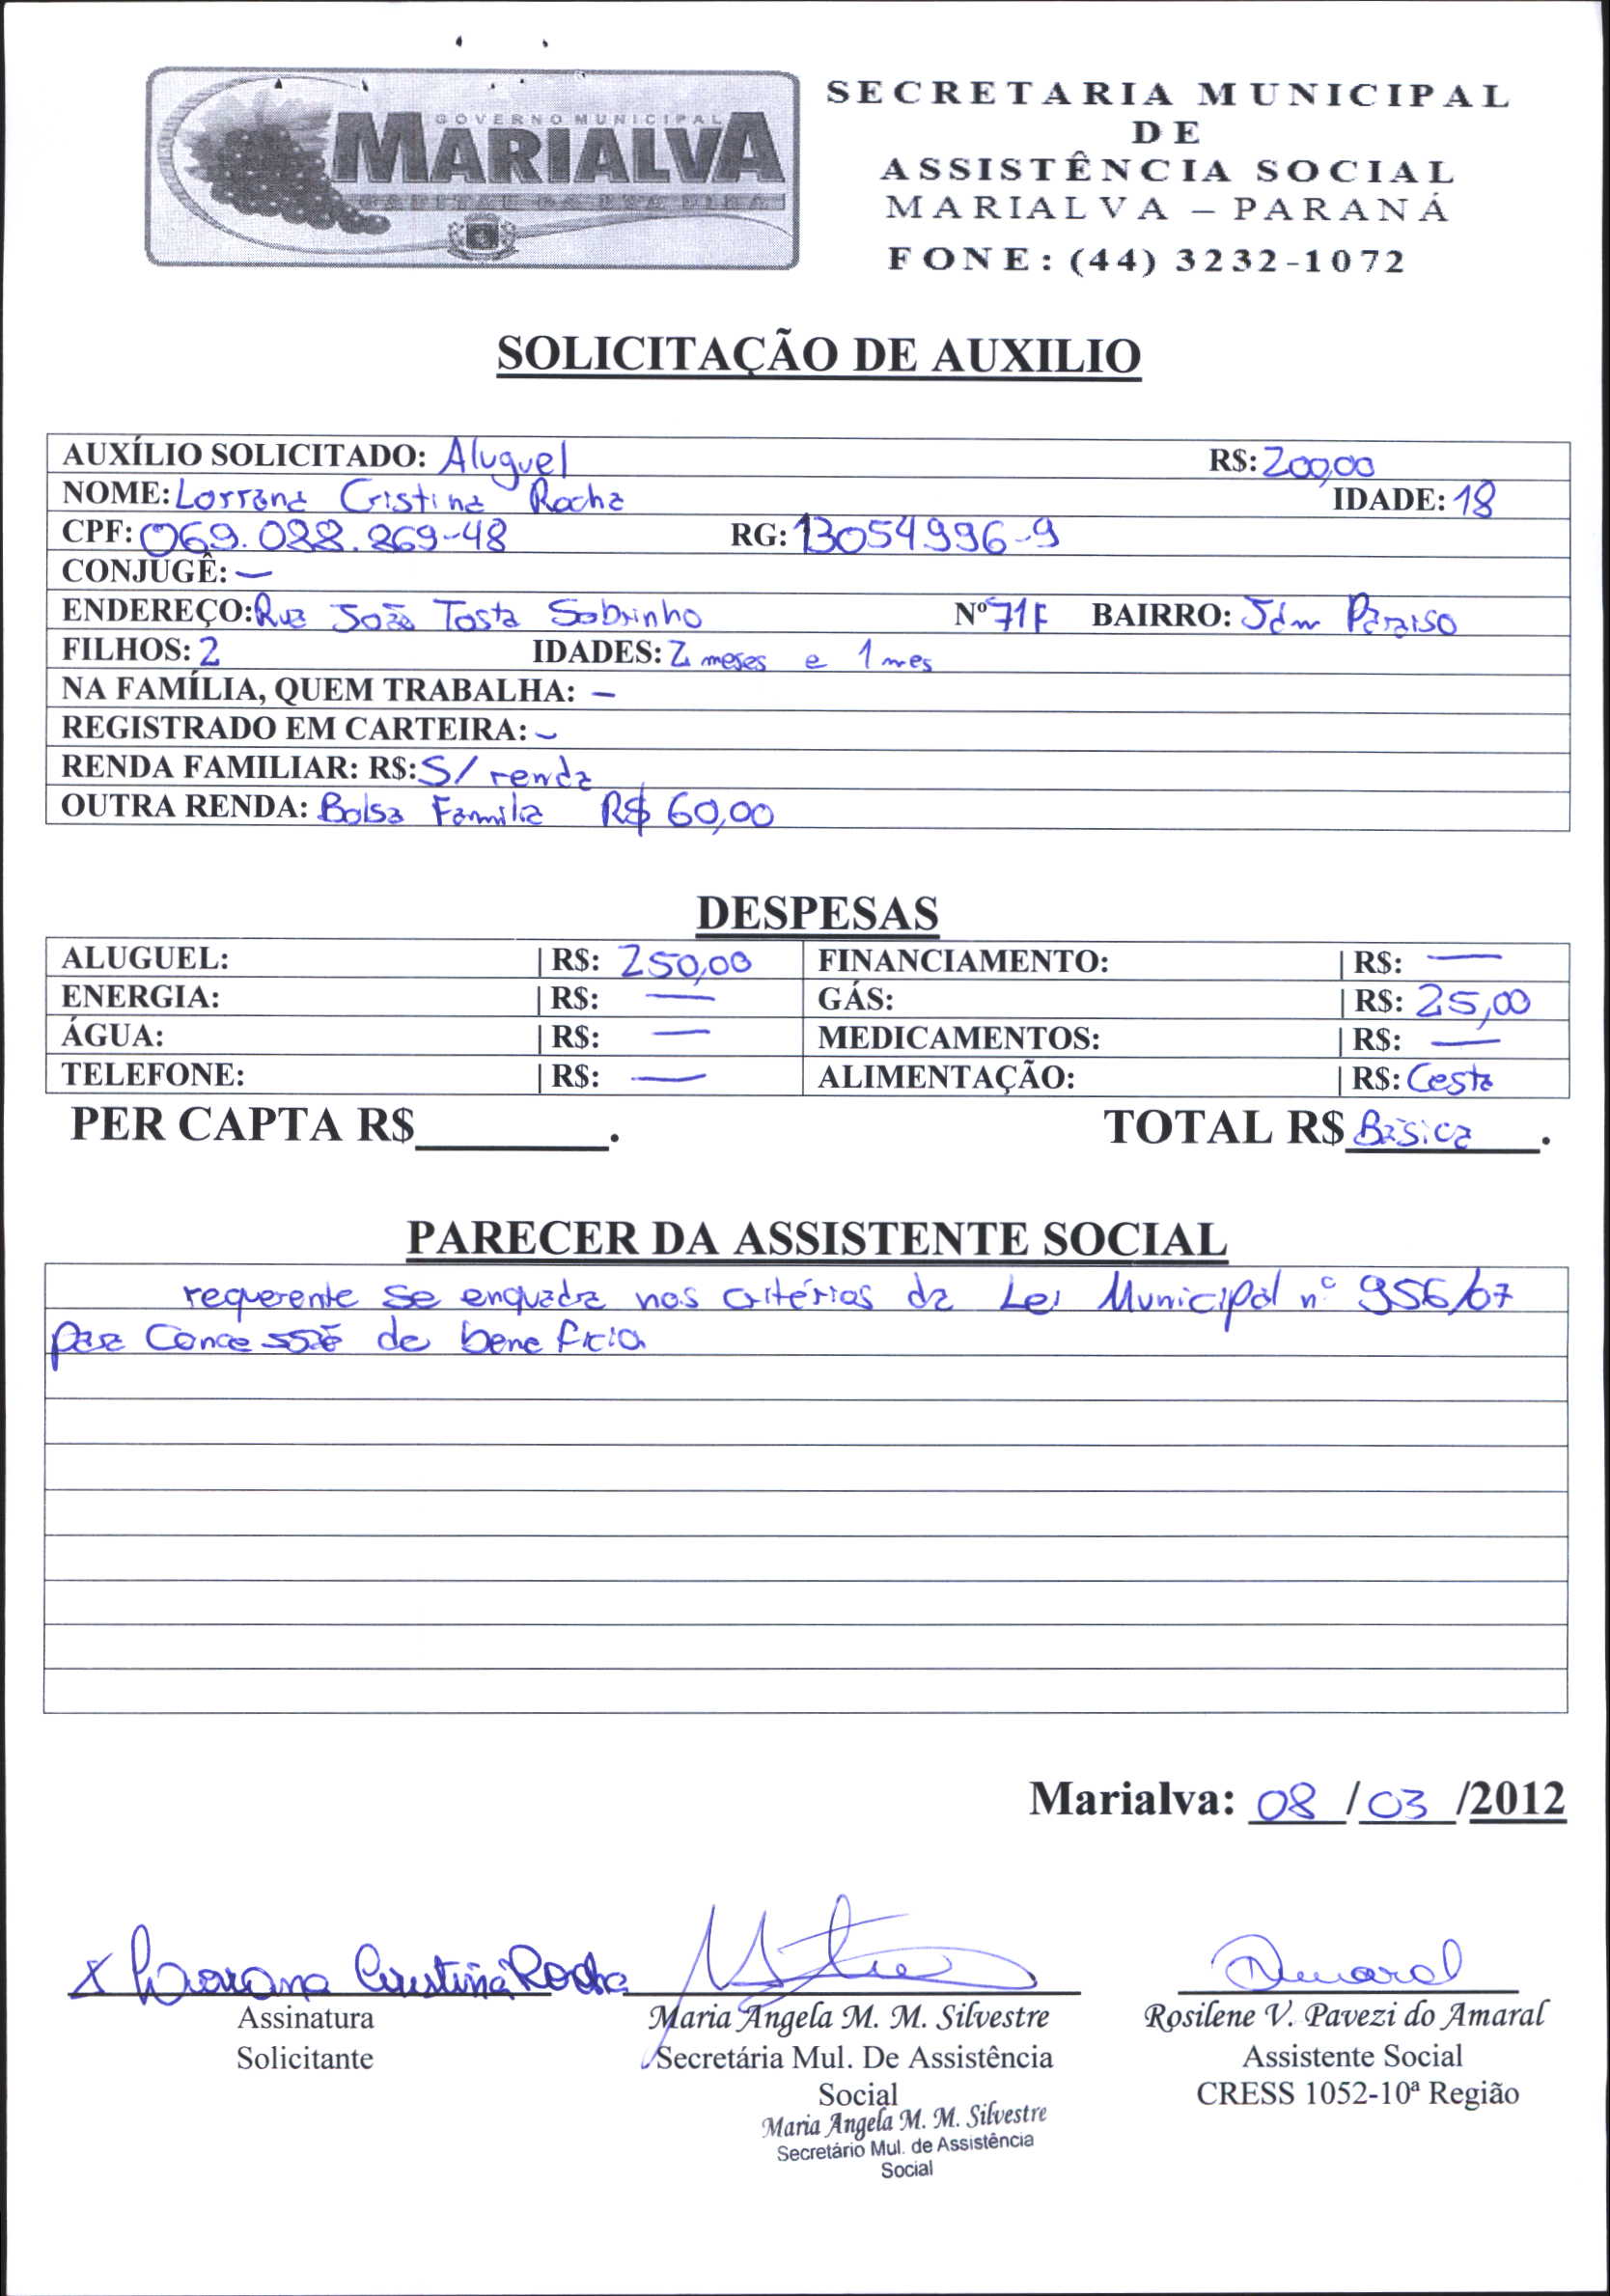 GOVERNO MUNICIPAL
MARIALVA
CAPITAL DA UVA FINA
SECRETARIA MUNICIPAL
DE
ASSISTÊNCIA SOCIAL
MARIALVA – PARANÁ
FONE: (44) 3232-1072
SOLICITAÇÃO DE AUXILIO
AUXÍLIO SOLICITADO: Aluguel R$: 200,00
NOME: Lorrana Cristina Rocha IDADE: 18
CPF: 069.088.269-48 RG: 13054996-9
CONJUGÊ: —
ENDEREÇO: Rua João Tosta Sobrinho Nº 71F BAIRRO: Jdm Paraiso
FILHOS: 2 IDADES: 2 meses e 1 mes
NA FAMÍLIA, QUEM TRABALHA: –
REGISTRADO EM CARTEIRA: –
RENDA FAMILIAR: R$: S/ renda
OUTRA RENDA: Bolsa Familia R$ 60,00
DESPESAS
ALUGUEL: | R$: 250,00 FINANCIAMENTO: | R$: —
ENERGIA: | R$: — GÁS: | R$: 25,00
ÁGUA: | R$: — MEDICAMENTOS: | R$: —
TELEFONE: | R$: — ALIMENTAÇÃO: | R$: Cesta
PER CAPTA R$________. TOTAL R$ Básica.
PARECER DA ASSISTENTE SOCIAL
requerente se enquadra nos critérios da Lei Municipal nº 956/07
para Concessão de beneficio
Marialva: 08 / 03 /2012
X Lorrana Cristina Rocha
Amaral
Assinatura
Solicitante
Maria Angela M. M. Silvestre
Secretária Mul. De Assistência
Social
Maria Angela M. M. Silvestre
Secretário Mul. de Assistência
Social
Rosilene V. Pavezi do Amaral
Assistente Social
CRESS 1052-10ª Região